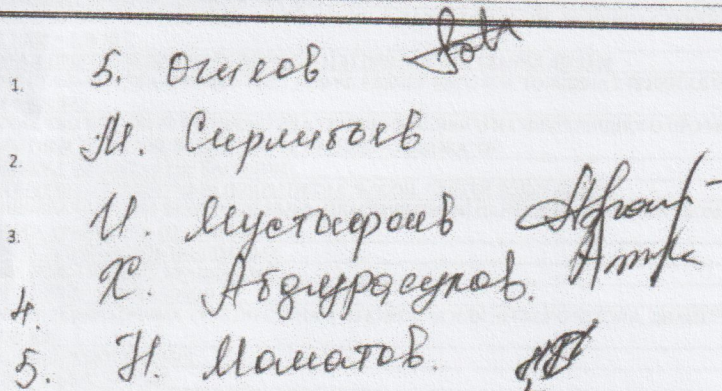 1. Б. Ошлов
2. М. Сирлибаев
3. И. Мустафаев
4. Х. Абдурасулов.
5. Н. Маматов.